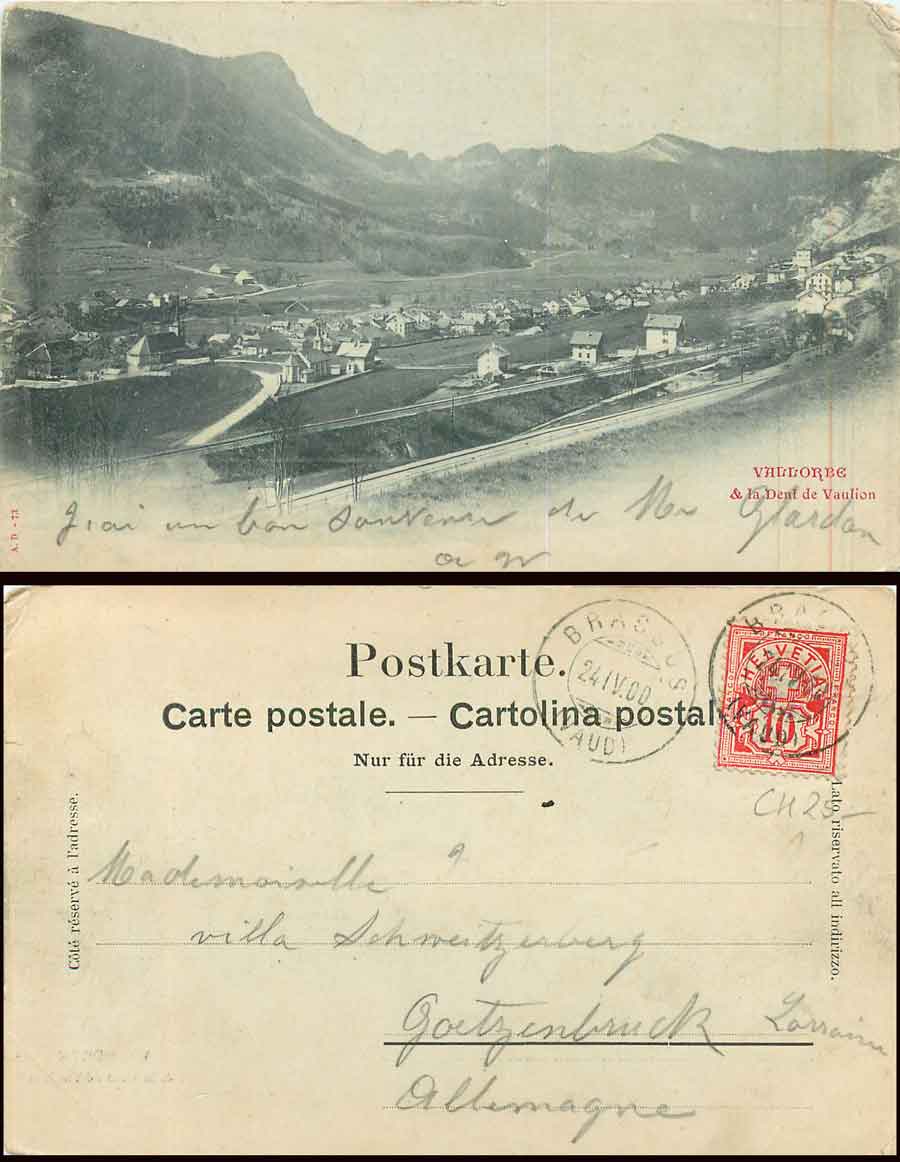 VALLORBE
& la Dent de Vaulion
A. D. - 73
J'ai un bon souvenir de Mr Glardon
Postkarte.
Carte postale. — Cartolina postal
Nur für die Adresse.
BRASSUS
24.IV.00
(VAUD)
BRAS
HELVETIA
10
CH 25-
Côté réservé à l'adresse.
Lato riservato all indirizzo.
Mademoiselle
villa Schweitzerberg
Goetzenbruck Lorraine
Allemagne